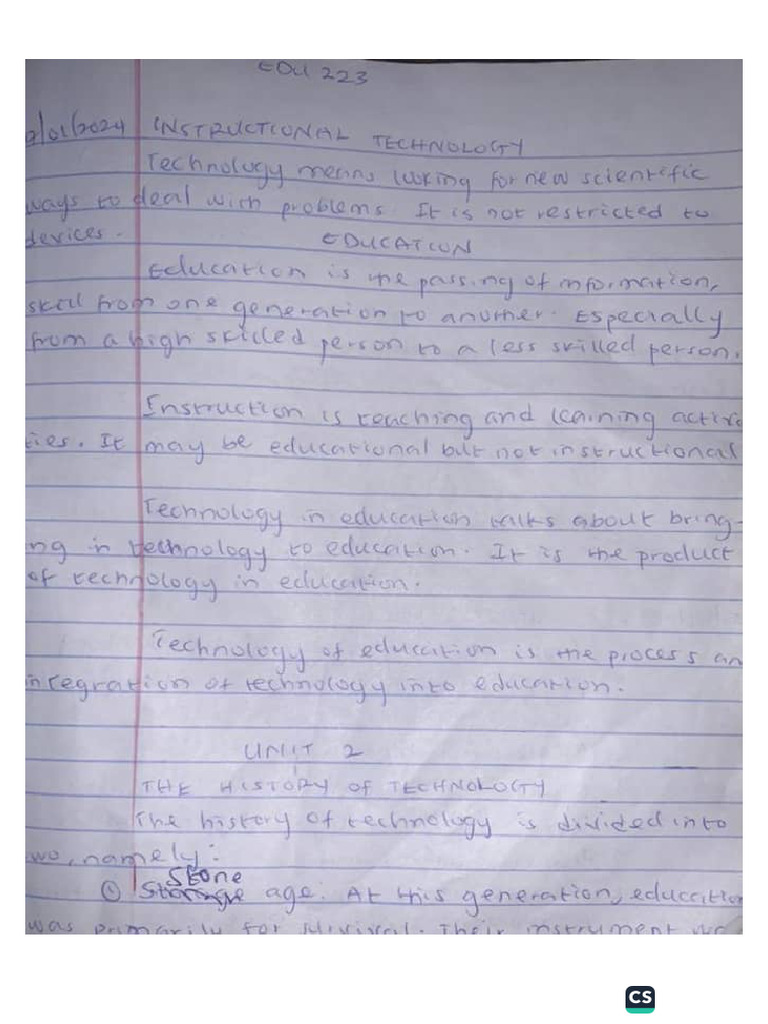 EDU 223
/01/2024 INSTRUCTIONAL TECHNOLOGY
Technology means looking for new scientific
ways to deal with problems. It is not restricted to
devices.
EDUCATION
Education is the passing of information,
skill from one generation to another. Especially
from a high skilled person to a less skilled person.
Instruction is teaching and learning activi
ties. It may be educational but not instructional
Technology in education talks about bring-
ng in technology to education. It is the product
of technology in education.
Technology of education is the process an
integration of technology into education.
UNIT 2
THE HISTORY OF TECHNOLOGY
The history of technology is divided into
wo, namely:
Stone
① age. At this generation, education
was primarily for survival. Their instrument
CS